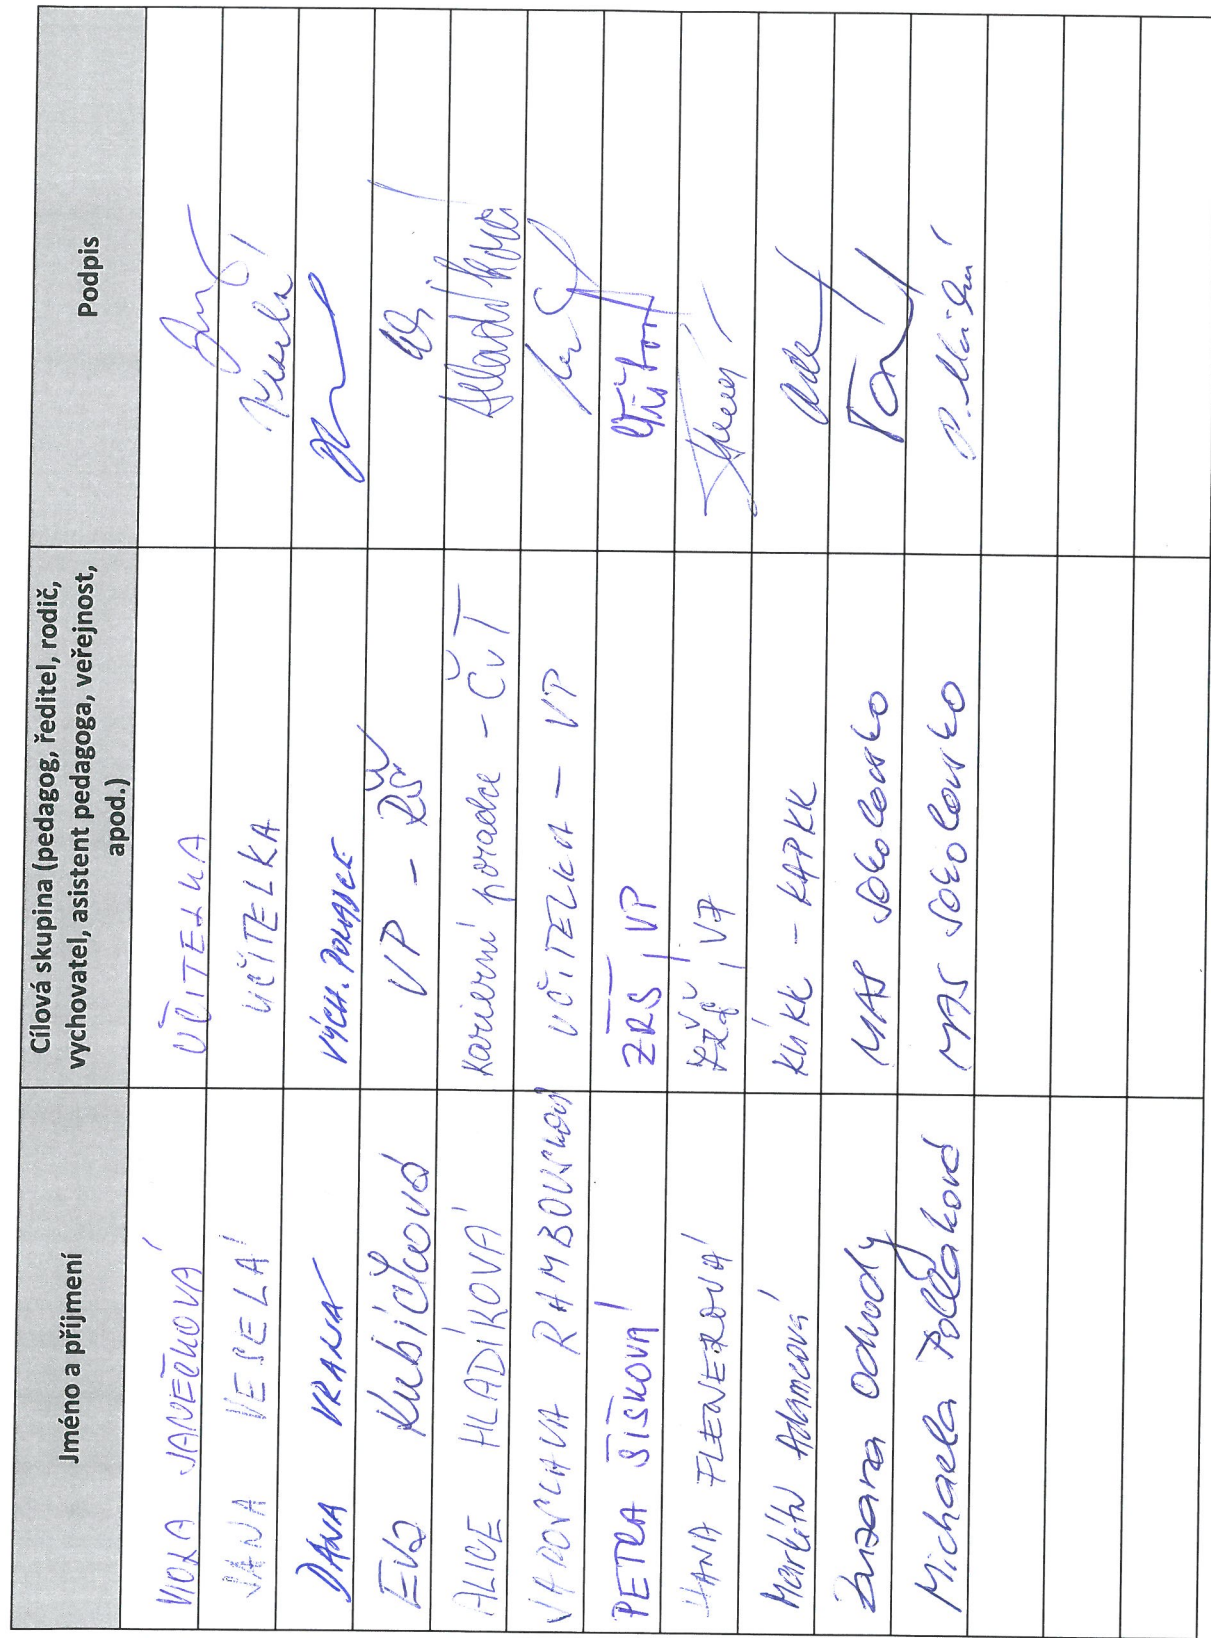 Jméno a příjmení Cílová skupina (pedagog, ředitel, rodič, Podpis
vychovatel, asistent pedagoga, veřejnost,
apod.)
VIOLA JANEČKOVÁ UČITELKA
JANA VESELÁ UČITELKA Veselá
DANA VRANÁ VÝCH. PORADCE
Eva Kubíčková VP - ZŠ
ALICE HLADÍKOVÁ Kariérní poradce - ČvT Hladíková
JAROSLAVA RAMBOUSKOVÁ UČITELKA - VP
PETRA ŠIŠKOVÁ ZŘŠ, VP
HANA FLENEROVÁ ZŘŠ, VP
Markéta Adamcová KÚKK - KAPKK
Zuzana Odvody MAS Sokolovsko
Michaela Polláková MAS Sokolovsko